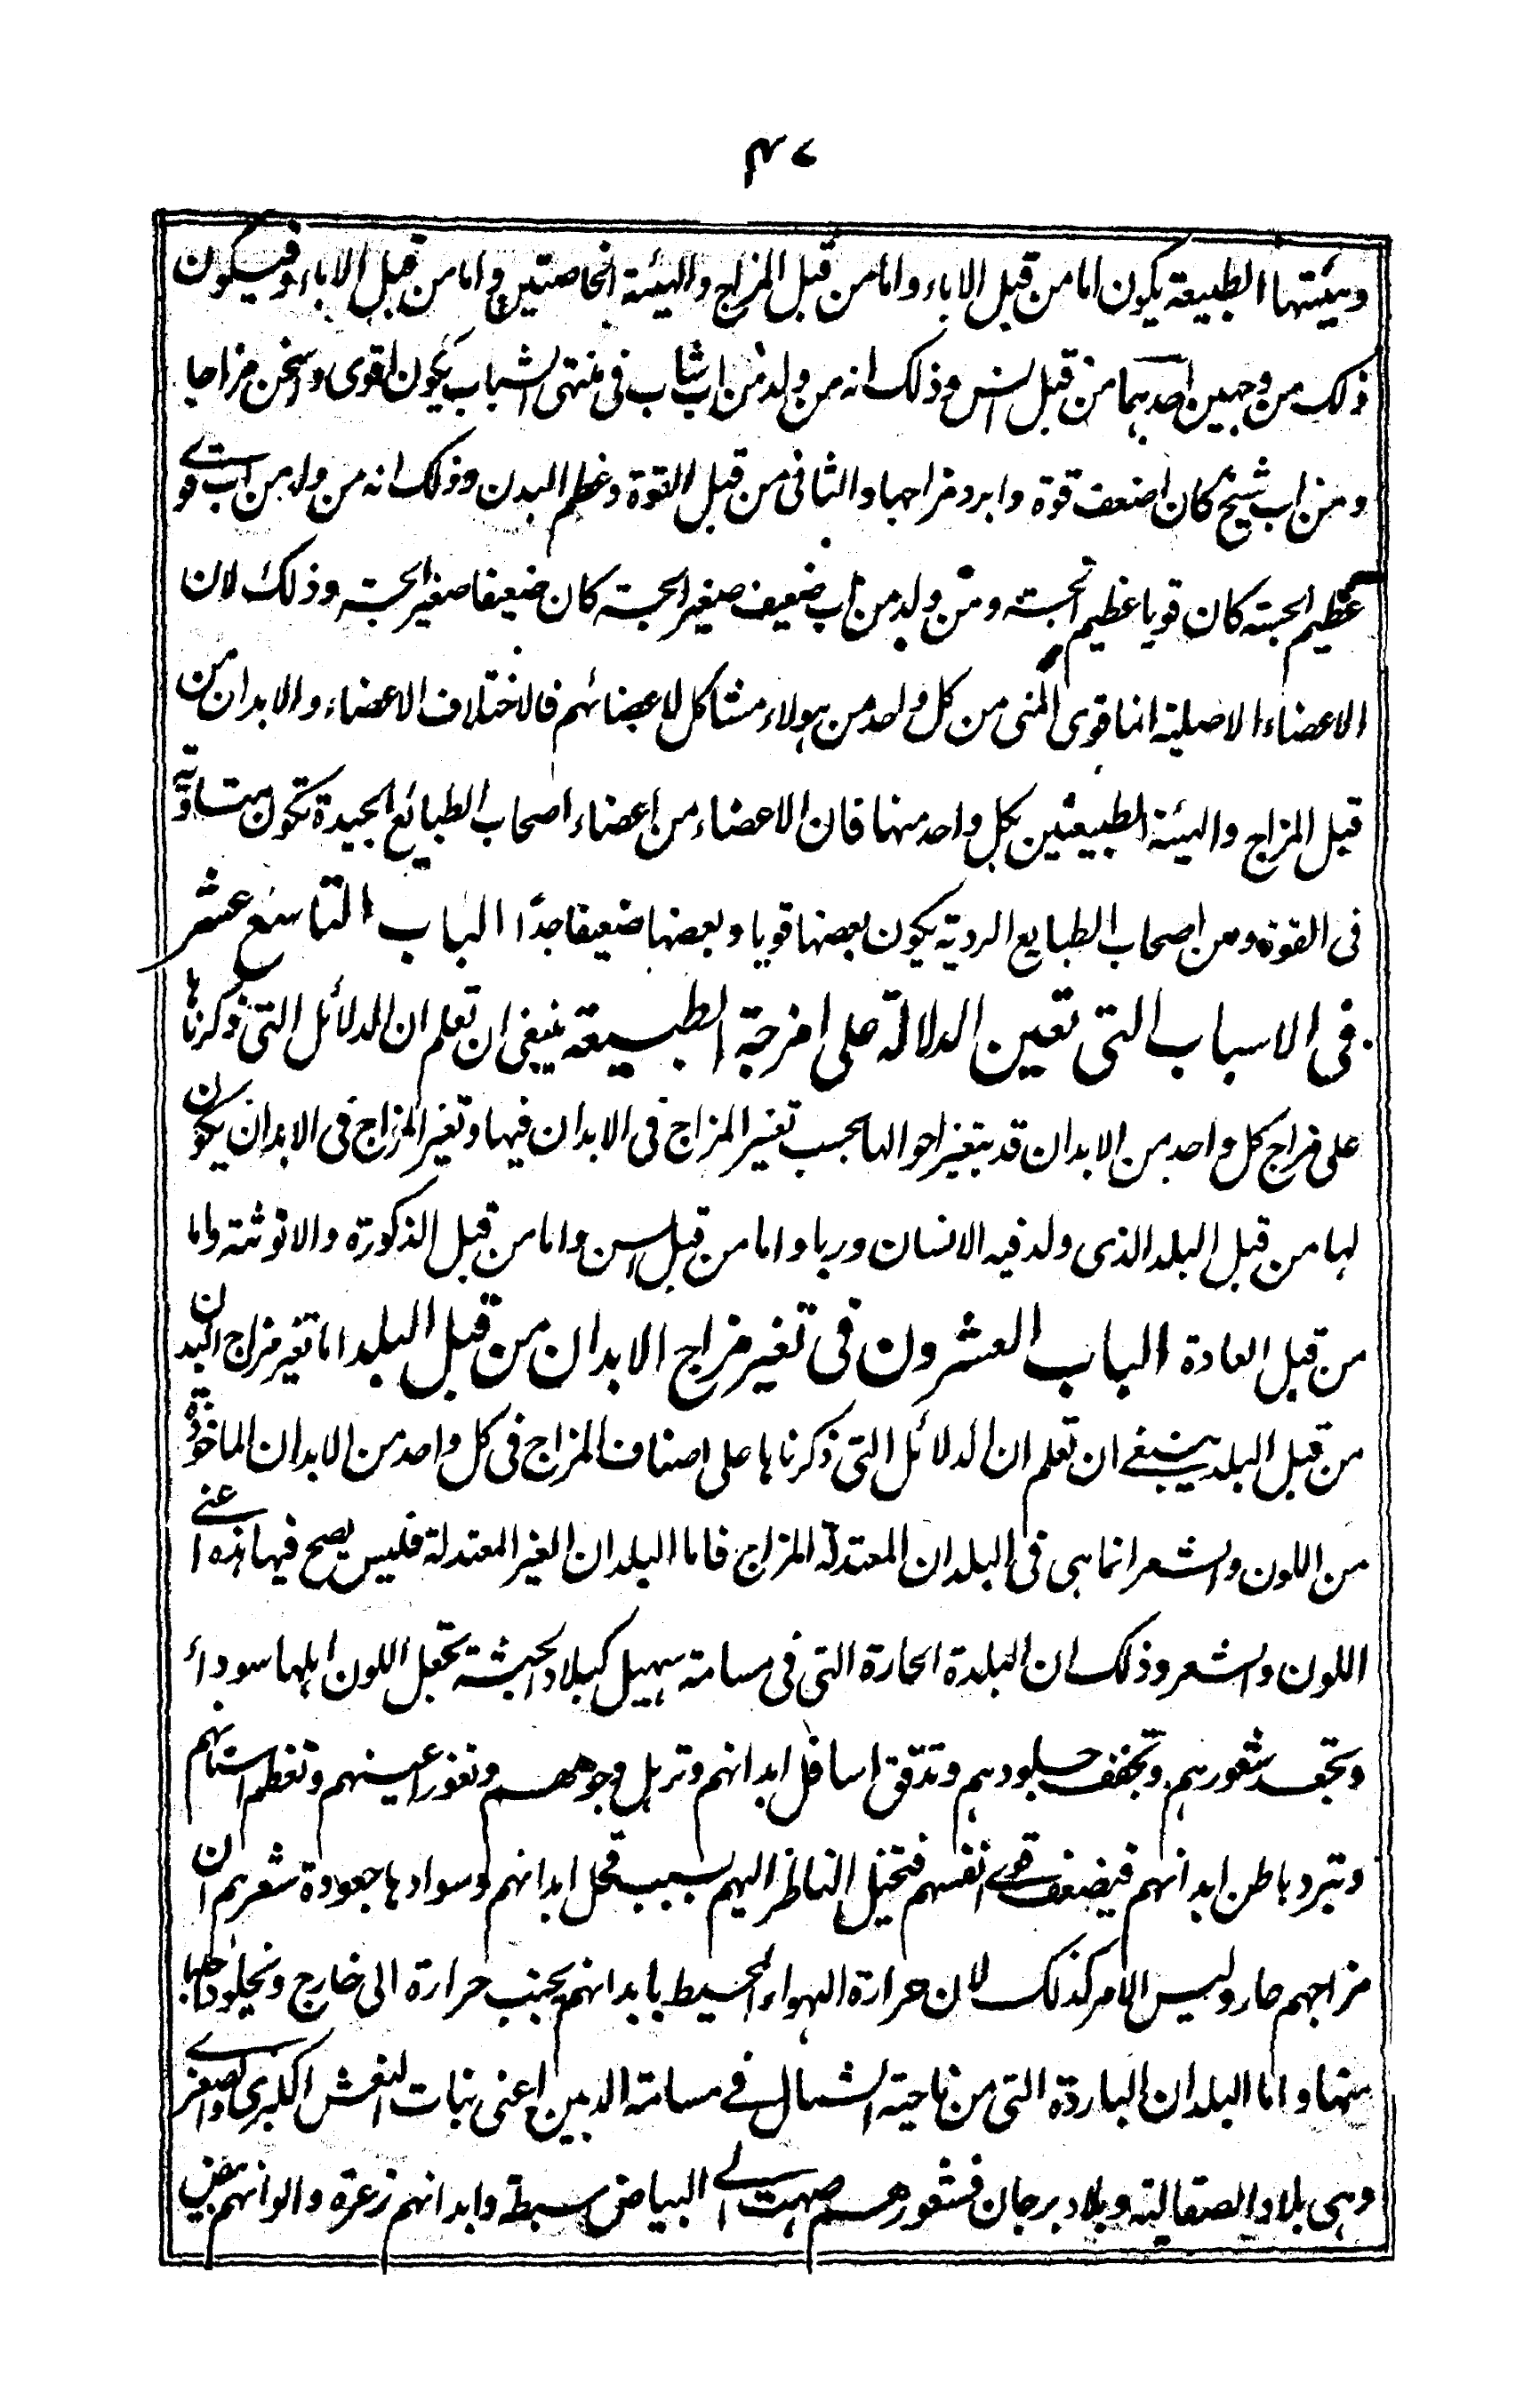 ۴۷
وہیئتہا الطبیعة یکون اما من قبل الاباء واما من قبل المزاج والہیئة الخاصتین واما من قبل الاباء فیکون
ذلک من وجہین احدہما من قبل السن وذلک انہ من ولد من اب شاب فی منتہی الشباب یکون اقوی واسخن مزاجا
ومن اب شیخ کان اضعف قوة وابرد مزاجہا والثانی من قبل القوة وعظم البدن وذلک انہ من ولد من اب قوی
عظیم الجثة کان قویا عظیم الجثة ومن ولد من اب ضعیف صغیر الجثة کان ضعیفا صغیر الجثة وذلک لان
الاعضاء الاصلیة انما قوی المنی من کل واحد من ہولاء مشاکل لاعضائہم فالاختلاف الاعضاء والابدان من
قبل المزاج والہیئة الطبیعتین بکل واحد منہا فان الاعضاء من اعضاء اصحاب الطبائع الجیدة تکون متساویة
فی القوة ومن اصحاب الطبایع الردیة یکون بعضہا قویا وبعضہا ضعیفا جدًا الباب التاسع عشر
فی الاسباب التی تعین الدلالة علی امزجة الطبیعة ینبغی ان تعلم ان الدلائل التی ذکرناہا
علی مزاج کل واحد من الابدان قد یتغیر احوالہا بحسب تغیر المزاج فی الابدان فیہا وتغیر المزاج فی الابدان یکون
لہا من قبل البلد الذی ولد فیہ الانسان وربا واما من قبل السن واما من قبل الذکورة والانوثة واما
من قبل العادة الباب العشرون فی تغیر مزاج الابدان من قبل البلد اما تغیر مزاج البدن
من قبل البلد ینبغی ان تعلم ان الدلائل التی ذکرناہا علی اصناف المزاج فی کل واحد من الابدان الماخوذة
من اللون والشعر انما ہی فی البلدان المعتدلة المزاج فاما البلدان الغیر المعتدلة فلیس یصح فیہا ہذہ اعنی
اللون والشعر وذلک ان البلدة الحارة التی فی مسامتة سہیل کبلاد الحبشة تجعل اللون اہلہا سوداً
وتجعد شعورہم وتجفف جلودہم وتدقق اسافل ابدانہم وتربل وجوہہم وتغور اعینہم وتعظم اسنانہم
وتبرد باطن ابدانہم فیضعف قوی انفسہم فتخیل الناظر الیہم بسبب قحل ابدانہم وسوادہا جعودة شعرہم ان
مزاجہم حار ولیس الامر کذلک لان حرارة الہواء المحیط بابدانہم یجذب حرارة الی خارج ویخلو داخلہا
منہا واما البلدان الباردة التی من ناحیة الشمال فی مسامتة الدبین اعنی بنات النعش الکبری والصغری
وہی بلاد الصقالبة وبلاد برجان فشعورہم صہبت الی البیاض سبطة وابدانہم زعرة والوانہم بیض